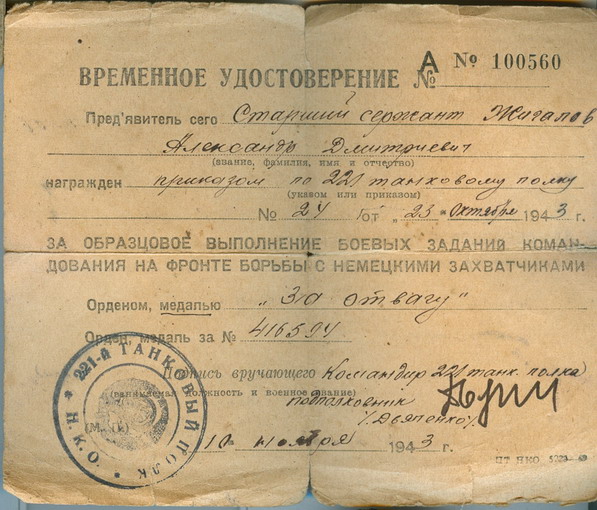 А № 100560
ВРЕМЕННОЕ УДОСТОВЕРЕНИЕ №
Пред'явитель сего Старший сержант Жигалов
Александр Дмитриевич
(звание, фамилия, имя и отчество)
награжден приказом по 221 танковому полку
(указом или приказом)
№ 24 от „23" октября 1943 г.
ЗА ОБРАЗЦОВОЕ ВЫПОЛНЕНИЕ БОЕВЫХ ЗАДАНИЙ КОМАН-
ДОВАНИЯ НА ФРОНТЕ БОРЬБЫ С НЕМЕЦКИМИ ЗАХВАТЧИКАМИ
Орденом, медалью „За отвагу"
Орден, медаль за № 416594
Подпись вручающего Командир 221 танк. полка
(занимаемая должность и военное звание)
подполковник
(М. П.) /Дьяпенко/.
10 ноября 1943 г.
221-й ТАНКОВЫЙ ПОЛК * Н.К.О. *
ЦТ НКО